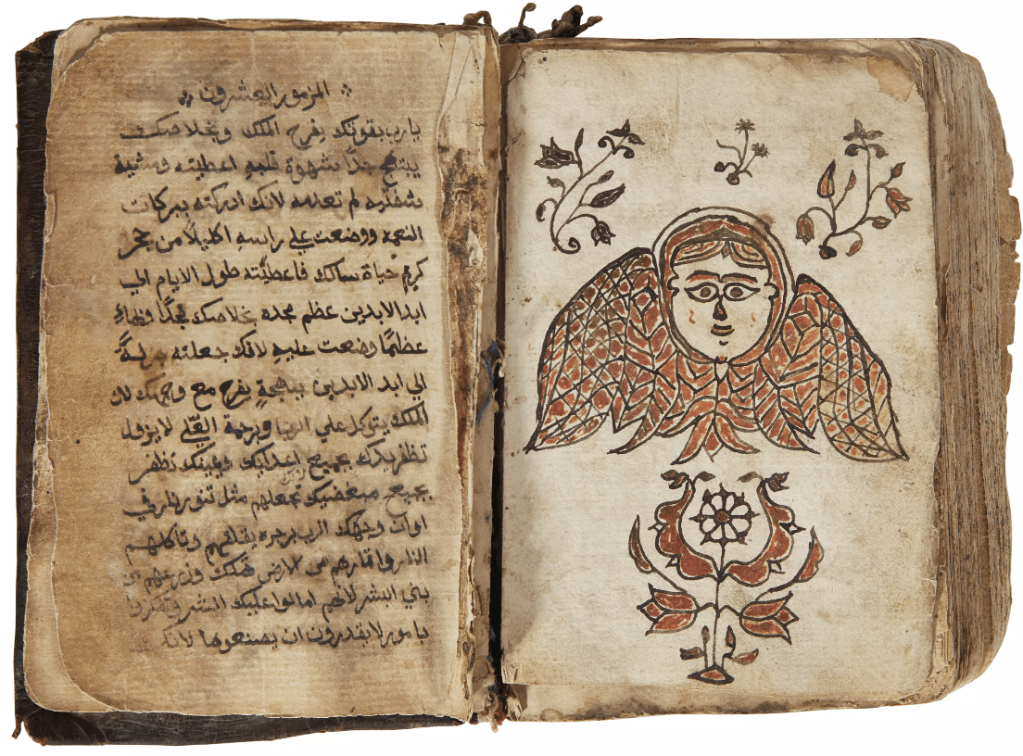 المزمور العشرون
يارب بقوتك يفرح الملك وبخلاصك
يبتهج جدًا شهوة قلبه اعطيته ومشية
شفتيه لم تعدمه لانك ادركته ببركات
النعمه ووضعت علي راسه اكليلاً من حجر
كريم حياة سالك فاعطيته طول الايام الي
ابد الابدين عظم مجده بخلاصك مجدًا وبهاءً
عظيمًا وضعت عليه لانك جعلته بركةً
الي ابد الابدين ببهجةٍ بفرح مع وجهك لان
الملك يتوكل علي الرب وبرحمة العَلي لا يزول
تظفر يدك بجميع اعدايك ويمينك تظفر
بجميع مبغضيك تجعلهم مثل تنور نار في
اوان وجهك الرب برجزه يقلقهم وتاكلهم
النار واثمارهم من الارض تهلك وزرعهم من
بني البشر لانهم امالوا عليك الشر وتفكروا
بامور لا يقدرون ان يصنعوها لانك